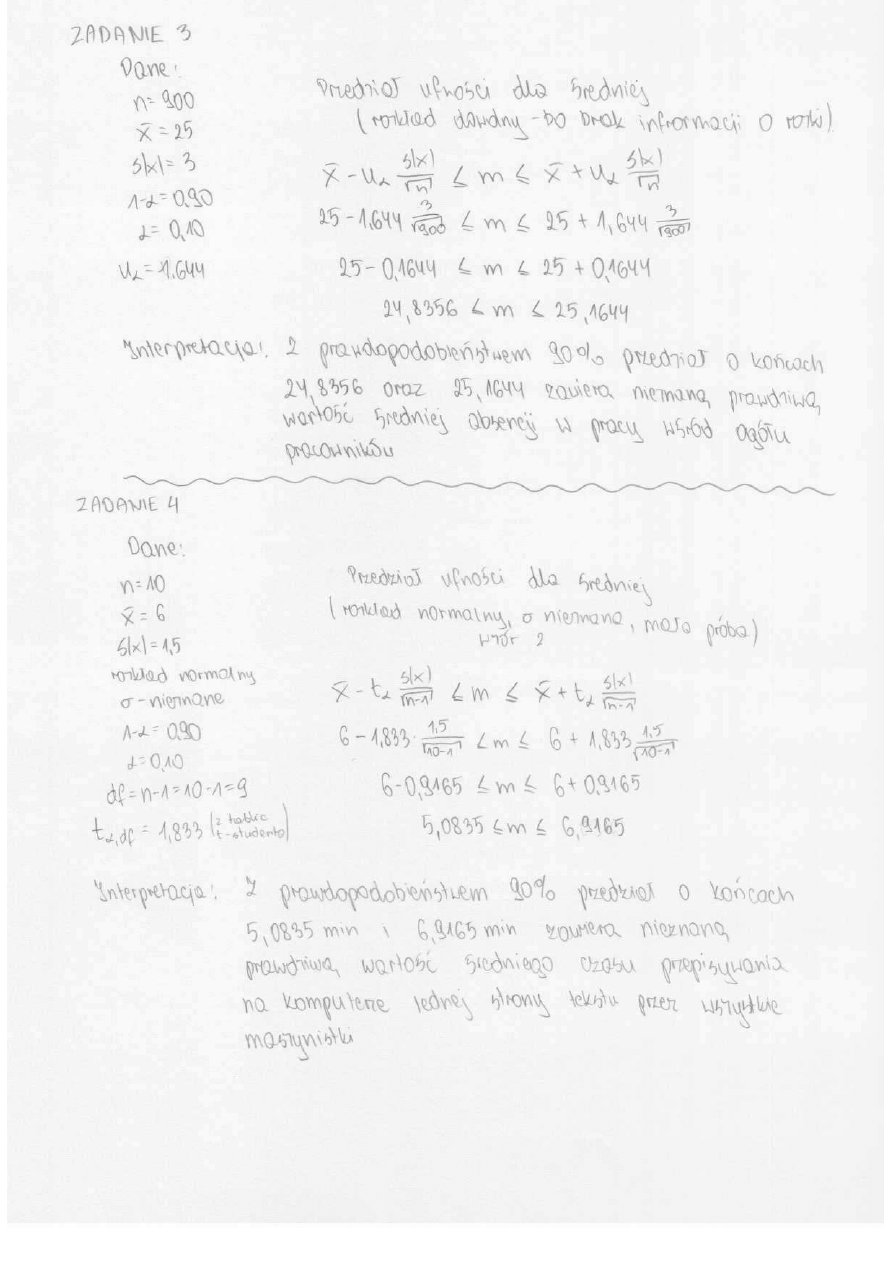 ZADANIE 3
Dane:
n=900
x̄=25
s(x)=3
1-α=0,90
α=0,10
uα=1.644
Przedział ufności dla średniej
(rozkład dowolny - bo brak infrormacji o rozkł)
x̄ - uα s(x)/√n ≤ m ≤ x̄ + uα s(x)/√n
25-1.644 3/√900 ≤ m ≤ 25 + 1,644 3/√900
25-0,1644 ≤ m ≤ 25 + 0,1644
24,8356 ≤ m ≤ 25,1644
Interpretacja: Z prawdopodobieństwem 90% przedział o końcach
24,8356 oraz 25,1644 zawiera nieznaną prawdziwą
wartość średniej absencji w pracy wśród ogółu
pracowników
ZADANIE 4
Dane:
n=10
x̄=6
s(x)=1,5
rozkład normalny
σ-nieznane
1-α=0,90
α=0,10
df=n-1=10-1=9
tα,df = 1,833 (z tablic t-studenta)
Przedział ufności dla średniej
(rozkład normalny, σ nieznana, mała próba)
wzór 2
x̄ - tα s(x)/√n-1 ≤ m ≤ x̄ + tα s(x)/√n-1
6-1,833· 1,5/√10-1 ≤ m ≤ 6 + 1,833 1,5/√10-1
6-0,9165 ≤ m ≤ 6+0,9165
5,0835 ≤ m ≤ 6,9165
Interpretacja: Z prawdopodobieństwem 90% przedział o końcach
5,0835 min i 6,9165 min zawiera nieznaną
prawdziwą wartość średniego czasu przepisywania
na komputerze jednej strony tekstu przez wszystkie
maszynistki